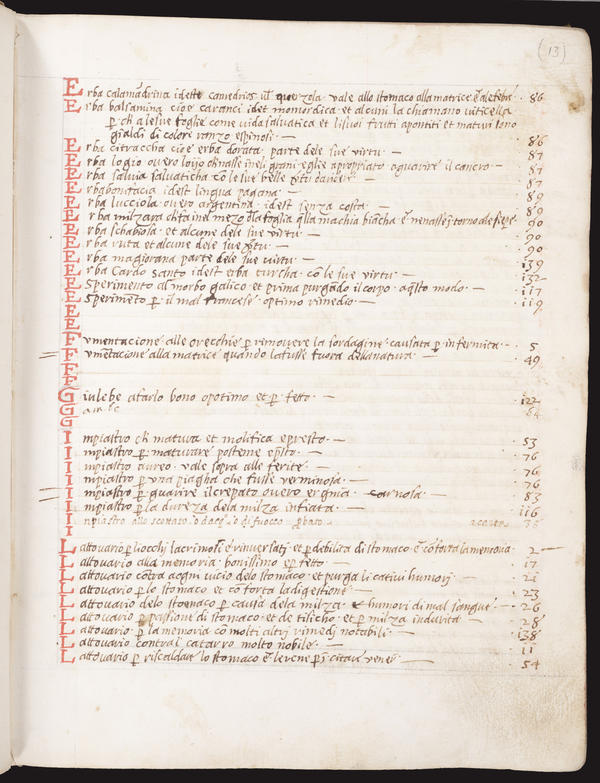 (13)
Erba calamadrina idest camedrios vel querzola vale allo stomaco alla matrice e ale febri · 86
Erba balsamina cioe caranci idet momordica et alcuni la chiamano viticella
p ch a le sue foglie come vida salvatica et li suoi fruti apontiti et maturi sono
gialdi di colore ranzo espinosi · 86
Erba citraccha cioe erba dorata parte dele sue virtu · 87
Erba logio overo loijo ch nasse ineli grani eglie apropriato aguarire il cancro · 87
Erba salvia salvaticha co le sue belle
Erba bonifacia idest lingua pagana · 87
Erba lucciola overo argentina idest senza costa · 89
Erba milzara ch fa inel mezo dla foglia qlla machia biacha e nenasse torno ale · 89
Erba schabiosa et alcune dele sue virtu · 90
Erba ruta et alcune dele sue virtu · 90
Erba magiorana parte dele sue virtu · 90
Erba Cardo santo idest erba turcha co le sue virtu · 139
Esperimento al morbo galico et prima purgado il corpo aqsto modo · 132
Esperimeto p il mal francese optimo rimedio · 117
· 119
E
E
Fumentacione alle orecchie p rimovere la sordagine causata p infermita · 5
Fumentacione alla matrice quando la fusse fuora della natura · 49
F
F
Giulebe afarlo bono opotimo et p fetto · 122
G
G
Impiastro ch matura et molifica epresto · 53
Impiastro p maturare posteme epsto · 76
Impiastro aureo vale sopra alle ferite · 76
Impiastro p una piagha che fusse verminosa · 76
Impiastro p guarire il crepato overo ergnia carnosa · 83
Impiastro p la dureza dela milza infiata · 116
Impiastro allo scottato o dacq o di fuoco
I
Lattovario p liocchi lacrimosi e rinversati et p debilita di stomaco e coforta la memoria · 2
Lattovario alla memoria bonissimo e p fetto · 17
Lattovario cotra aogni vicio delo stomaco et purga li cativi humori · 21
Lattovario p lo stomaco et coforta la digestione · 23
Lattovario delo stoenaco p causa dela milza & humori di mal sangue · 26
Lattovario p passione di stomaco et de tisicho et p milza indurita · 28
Lattovario p la memoria co molti altri rimedi notabili · 138
Lattovario contra l catarro molto nobile · 11
Lattovario p riscaldare lo stomaco e le rene p citare vener · 54